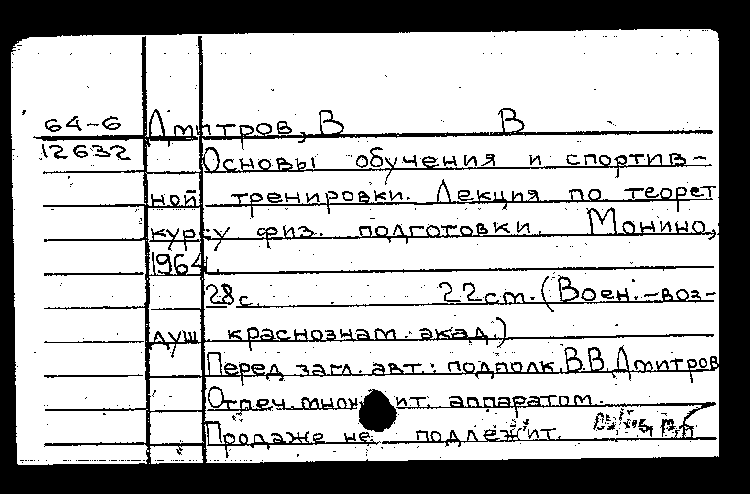 64-6 Дмитров, В В
12632 Основы обучения и спортив-
ной тренировки. Лекция по теорет
курсу физ. подготовки. Монино,
1964.
28с. 22см. (Воен.-воз-
душ краснознам. акад.)
Перед загл. авт.: подполк. В.В.Дмитров
Отпеч. множит. аппаратом.
Продаже не подлежит.